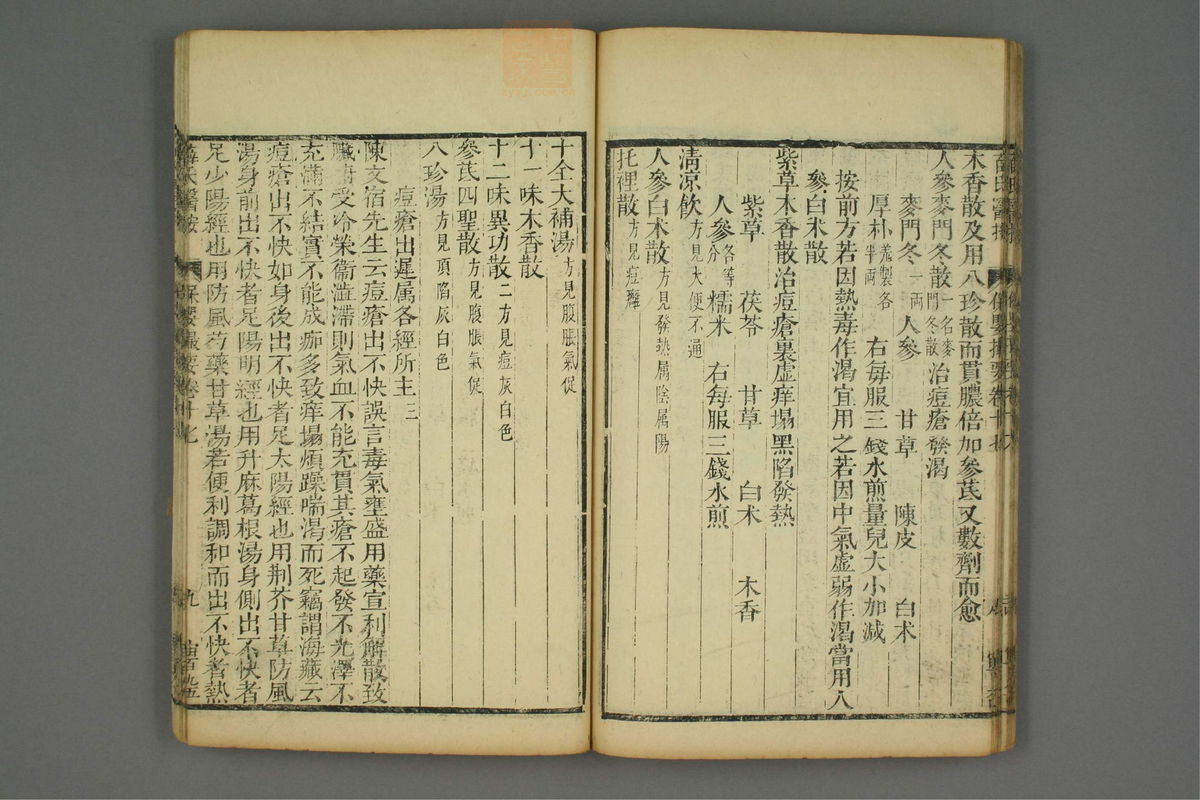 木香散及用八珍散而貫膿倍加參芪又數劑而愈
人參麥門冬散一名麥門冬散治痘瘡發渴
麥門冬一兩 人參 甘草 陳皮 白术
厚朴薑製各半兩 右每服三錢水煎量兒大小加減
按前方若因熱毒作渴宜用之若因中氣虛弱作渴當用人
參白术散
紫草木香散治痘瘡裏虛痒塌黑陷發熱
紫草 茯苓 甘草 白术 木香
人參各等分 糯米 右每服三錢水煎
清凉飲方見大便不通
人參白术散方見發熱屬陰屬陽
托裡散方見痘癰
十全大補湯方見腹脹氣促
十一味木香散
十二味異功散二方見痘灰白色
參芪四聖散方見腹脹氣促
八珍湯方見頂陷灰白色
痘瘡出遲属各經所主三
陳文宿先生云痘瘡出不快誤言毒氣壅盛用藥宣利解散致
臟腑受冷榮衞澁滯則氣血不能充貫其瘡不起發不光澤不
充滿不結實不能成痂多致痒塌煩躁喘渴而死竊謂海藏云
痘瘡出不快如身後出不快者足太陽經也用荆芥甘草防風
湯身前出不快者足陽明經也用升麻葛根湯身側出不快者
足少陽經也用防風芍藥甘草湯若便利調和而出不快者熱
薛氏醫按 保嬰撮要卷十七 九